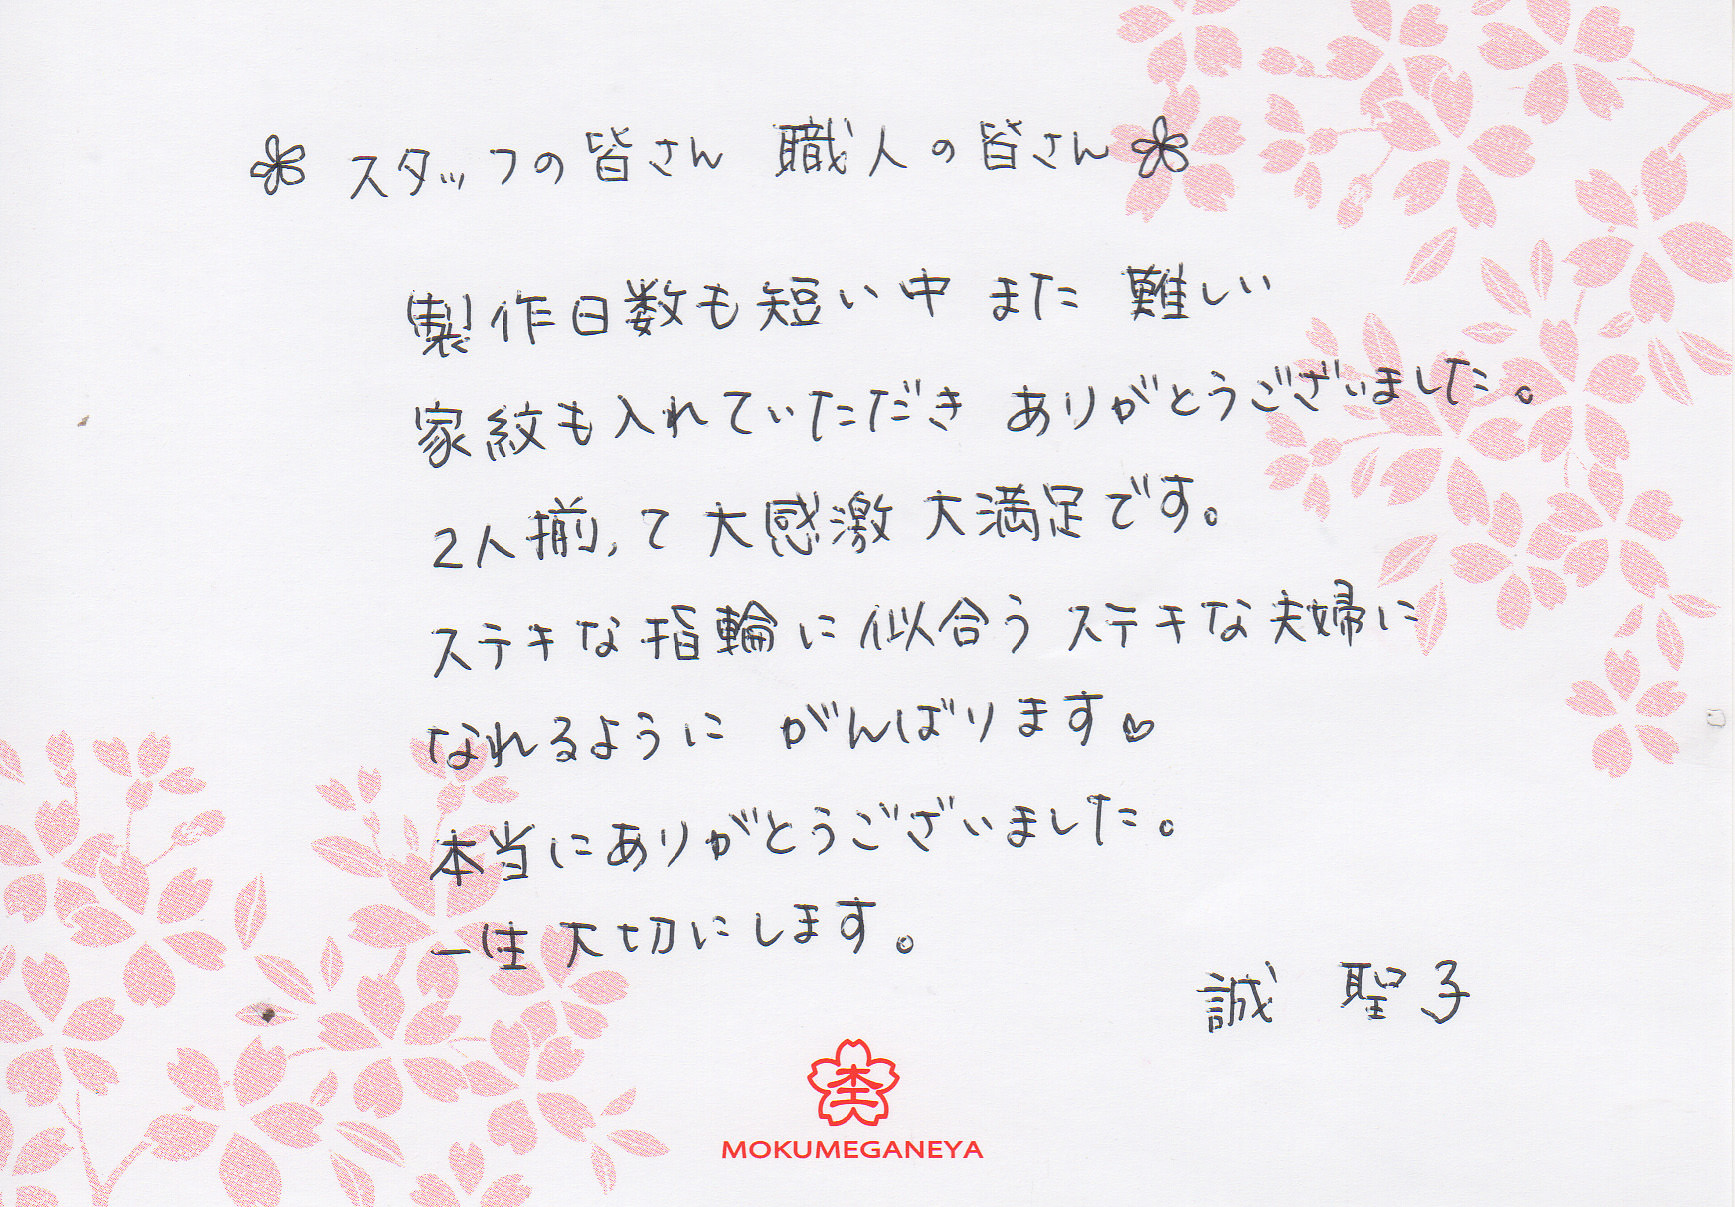 スタッフの皆さん 職人の皆さん
製作日数も短い中 また 難しい
家紋も入れていただき ありがとうございました。
2人揃って 大感激 大満足です。
ステキな指輪に似合う ステキな夫婦に
なれるように がんばります♡
本当にありがとうございました。
一生大切にします。
誠 聖子
MOKUMEGANEYA